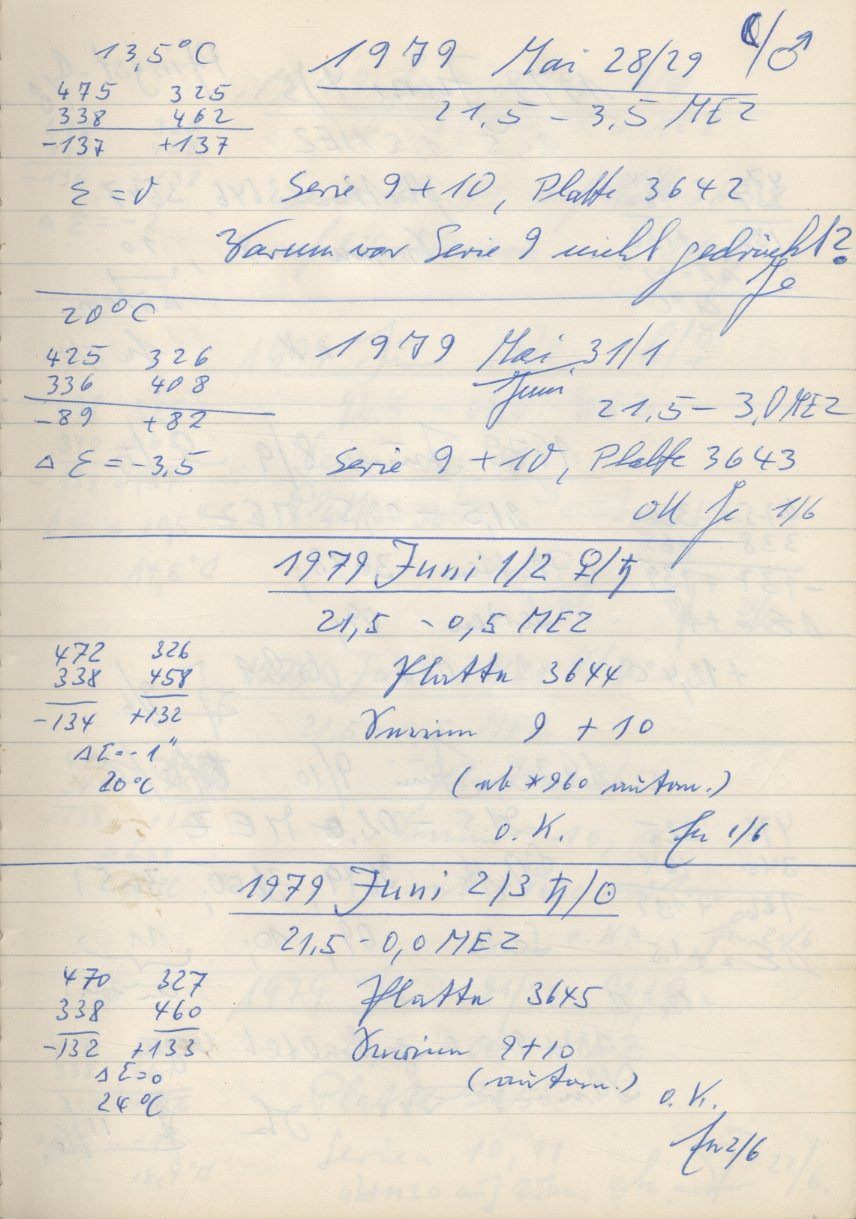 13,5°C 1979 Mai 28/29 ☾/♂
21,5 – 3,5 MEZ
475 325
338 462
-137 +137
Σ = 0 Serie 9 + 10, Platte 3642
Warum war Serie 9 nicht gedruckt?
Je
20°C
1979 Mai 31/1
Juni
425 326
336 408
21,5 – 3,0 MEZ
-89 +82
Δ Σ = -3,5 Serie 9 + 10, Platte 3643
OK Je 1/6
1979 Juni 1/2 ♀/♄
21,5 – 0,5 MEZ
472 326
338 458
Platte 3644
-134 +132
Serien 9 + 10
ΔΣ = -1"
20°C (ab *960 autom.)
o.K. 1/6
1979 Juni 2/3 ♄/⊙
21,5 – 0,0 MEZ
470 327
Platte 3645
338 460
-132 +133 Serien 9+10
ΔΣ=0 (autom.)
24°C o.K.
2/6